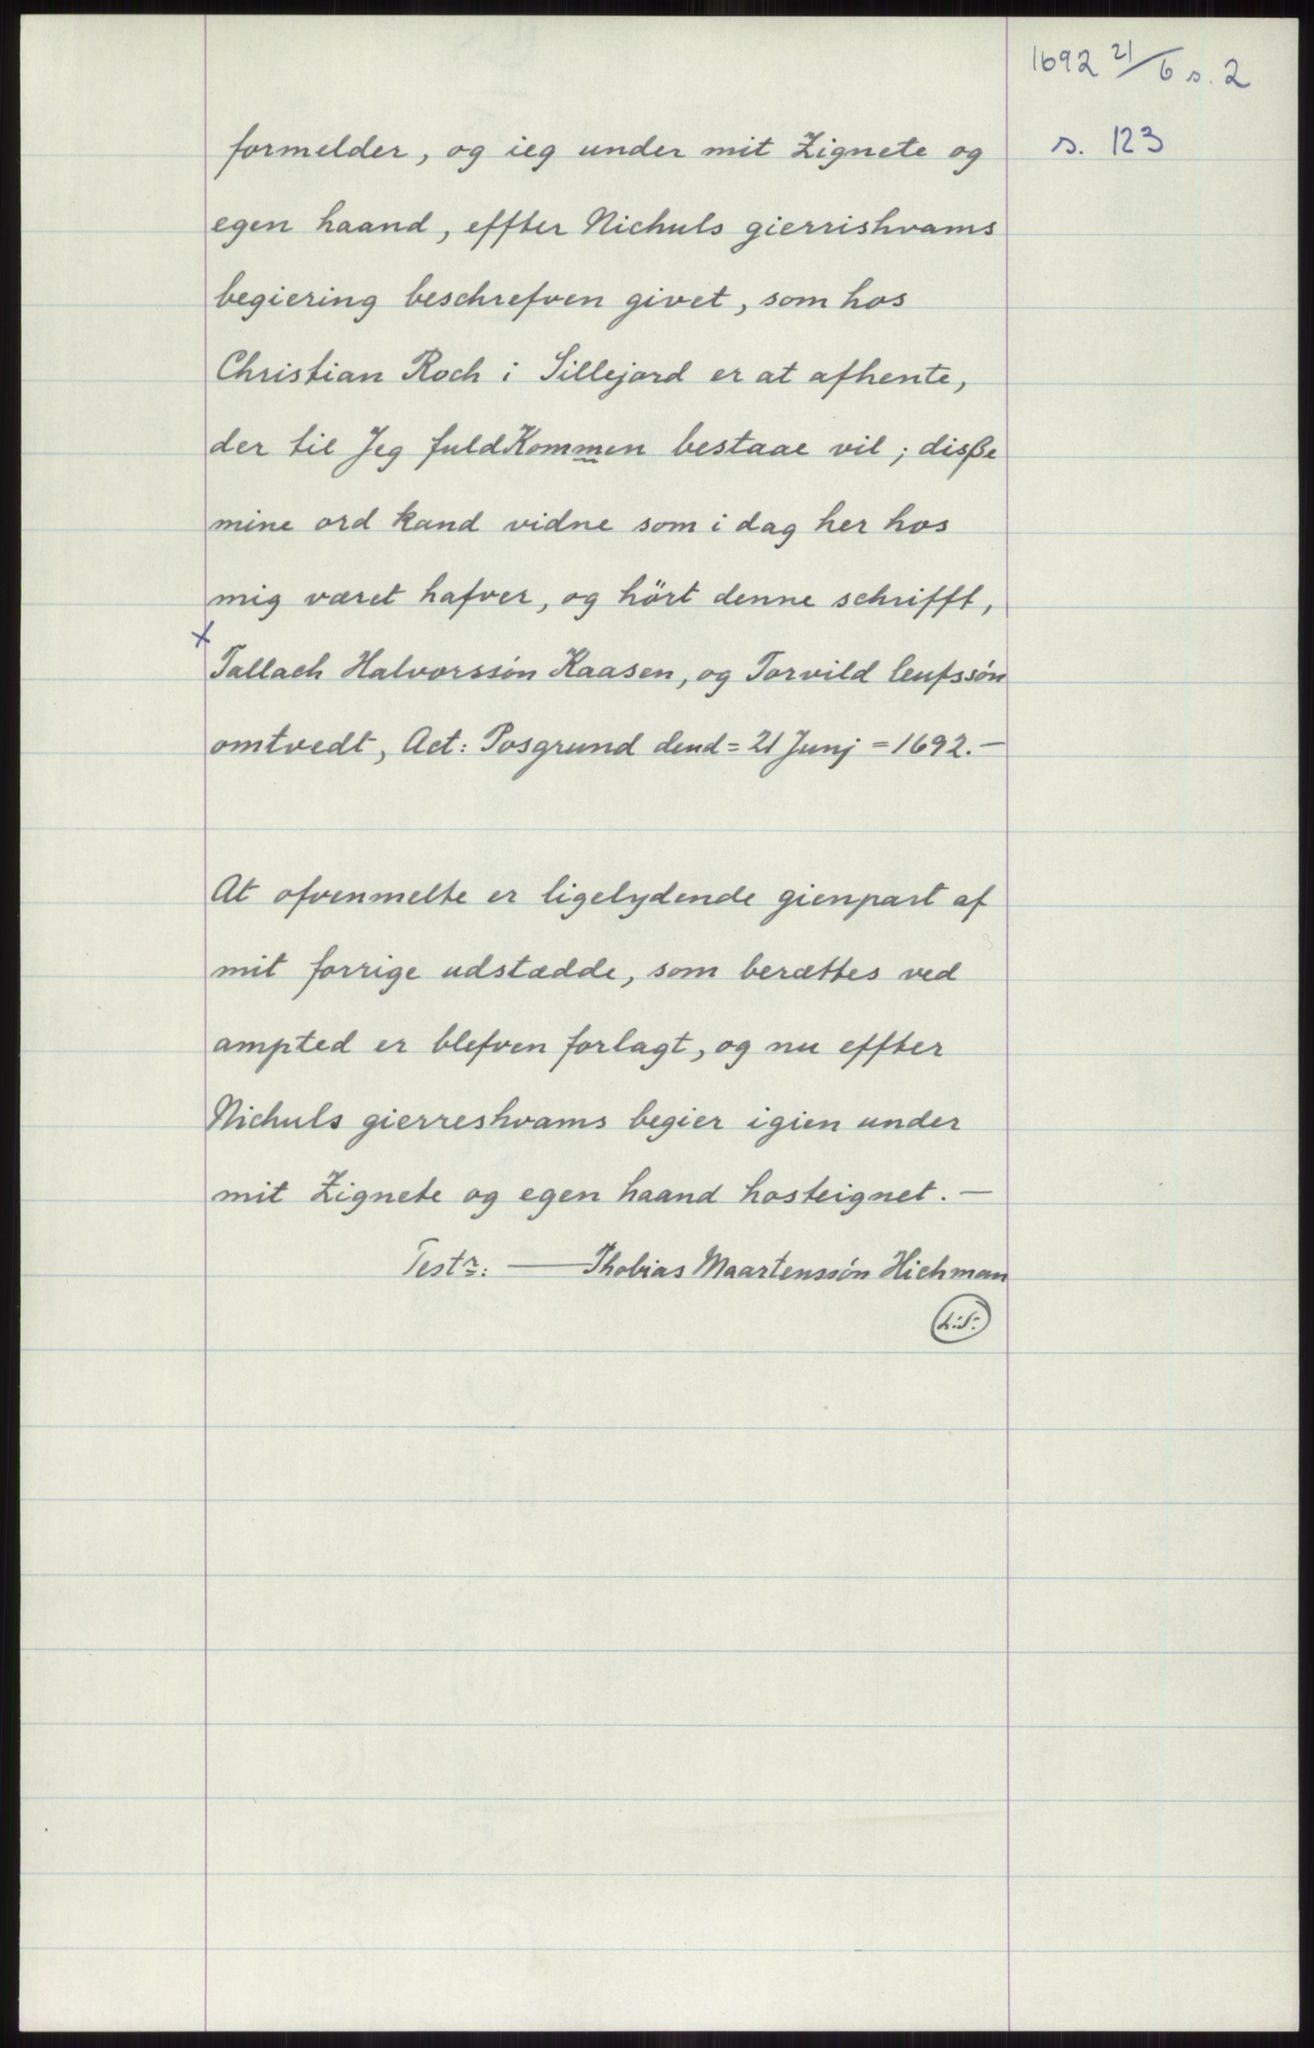 1692 21/6 s. 2
s. 123
formelder, og ieg under mit Zignete og
egen haand, effter Nichuls gierrishvams
begiering beschrefven givet, som hos
Christian Roch i Sillejord er at afhente,
der til Jeg fuldKommen bestaae vil; disße
mine ord kand vidne som i dag her hos
mig været hafver, og hört denne schrifft,
x
Tallach Halvorssón Kaasen, og Torvild leufssón
omtvedt, Act: Posgrund dend = 21 Junj = 1692. —
At ofvenmelte er ligelydende gienpart af
mit forrige udstædde, som berættes ved
ampted er blefven forlagt, og nu effter
Nichuls gierreshvams begier igien under
mit Zignete og egen haand hosteignet. —
Testr: — Thobias Maartenssón Hichman
L:S: